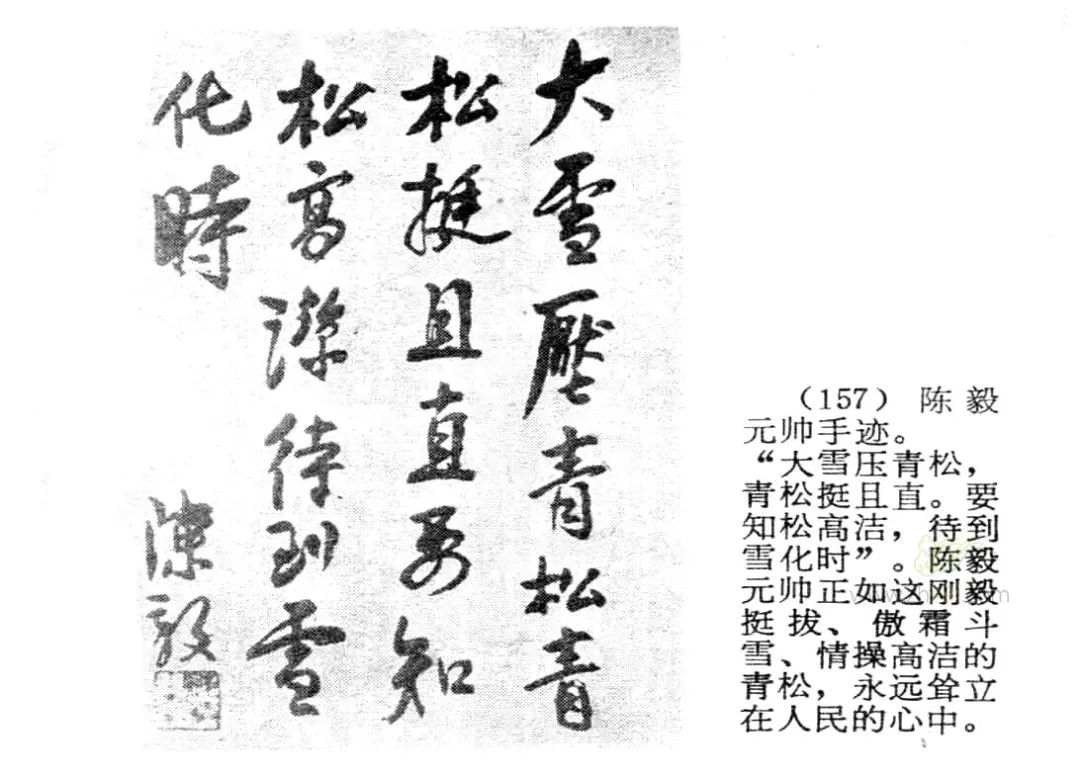 大雪壓青松青
松挺且直要知
松高潔待到雪
化時
陳毅
（157）陈毅
元帅手迹。
“大雪压青松，
青松挺且直。要
知松高洁，待到
雪化时”。陈毅
元帅正如这刚毅
挺拔、傲霜斗
雪、情操高洁的
青松，永远耸立
在人民的心中。